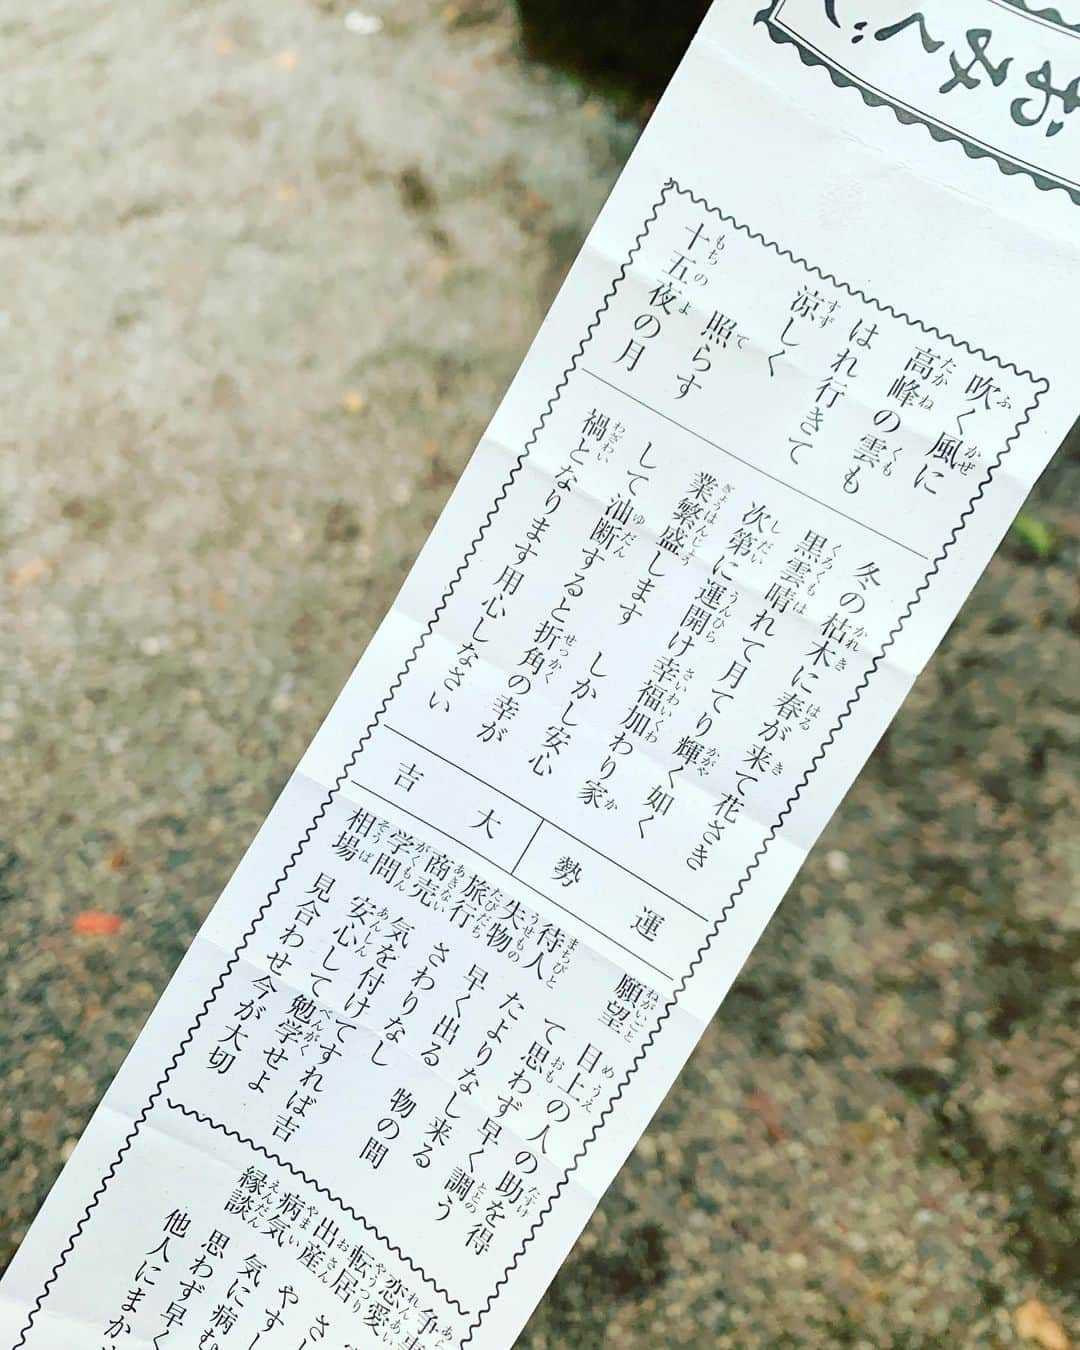 おみくじ
吹く風に
高峰の雲も
はれ行きて
涼しく
照らす
十五夜の月
冬の枯木に春が来て花さき
黒雲晴れて月てり輝く如く
次第に運開け幸福加わり家
業繁盛します　しかし安心
して油断すると折角の幸が
禍となります用心しなさい
運勢
大吉
願望　目上の人の助を得
て思わず早く調う
待人　たよりなし来る
失物　早く出る　物の間
旅行　さわりなし
商売　気を付けてすれば吉
学問　安心して勉学せよ
相場　見合わせ今が大切
争
恋愛
転居　さし
出産　やすし
病気　気に病む
縁談　思わず早く
他人にまか